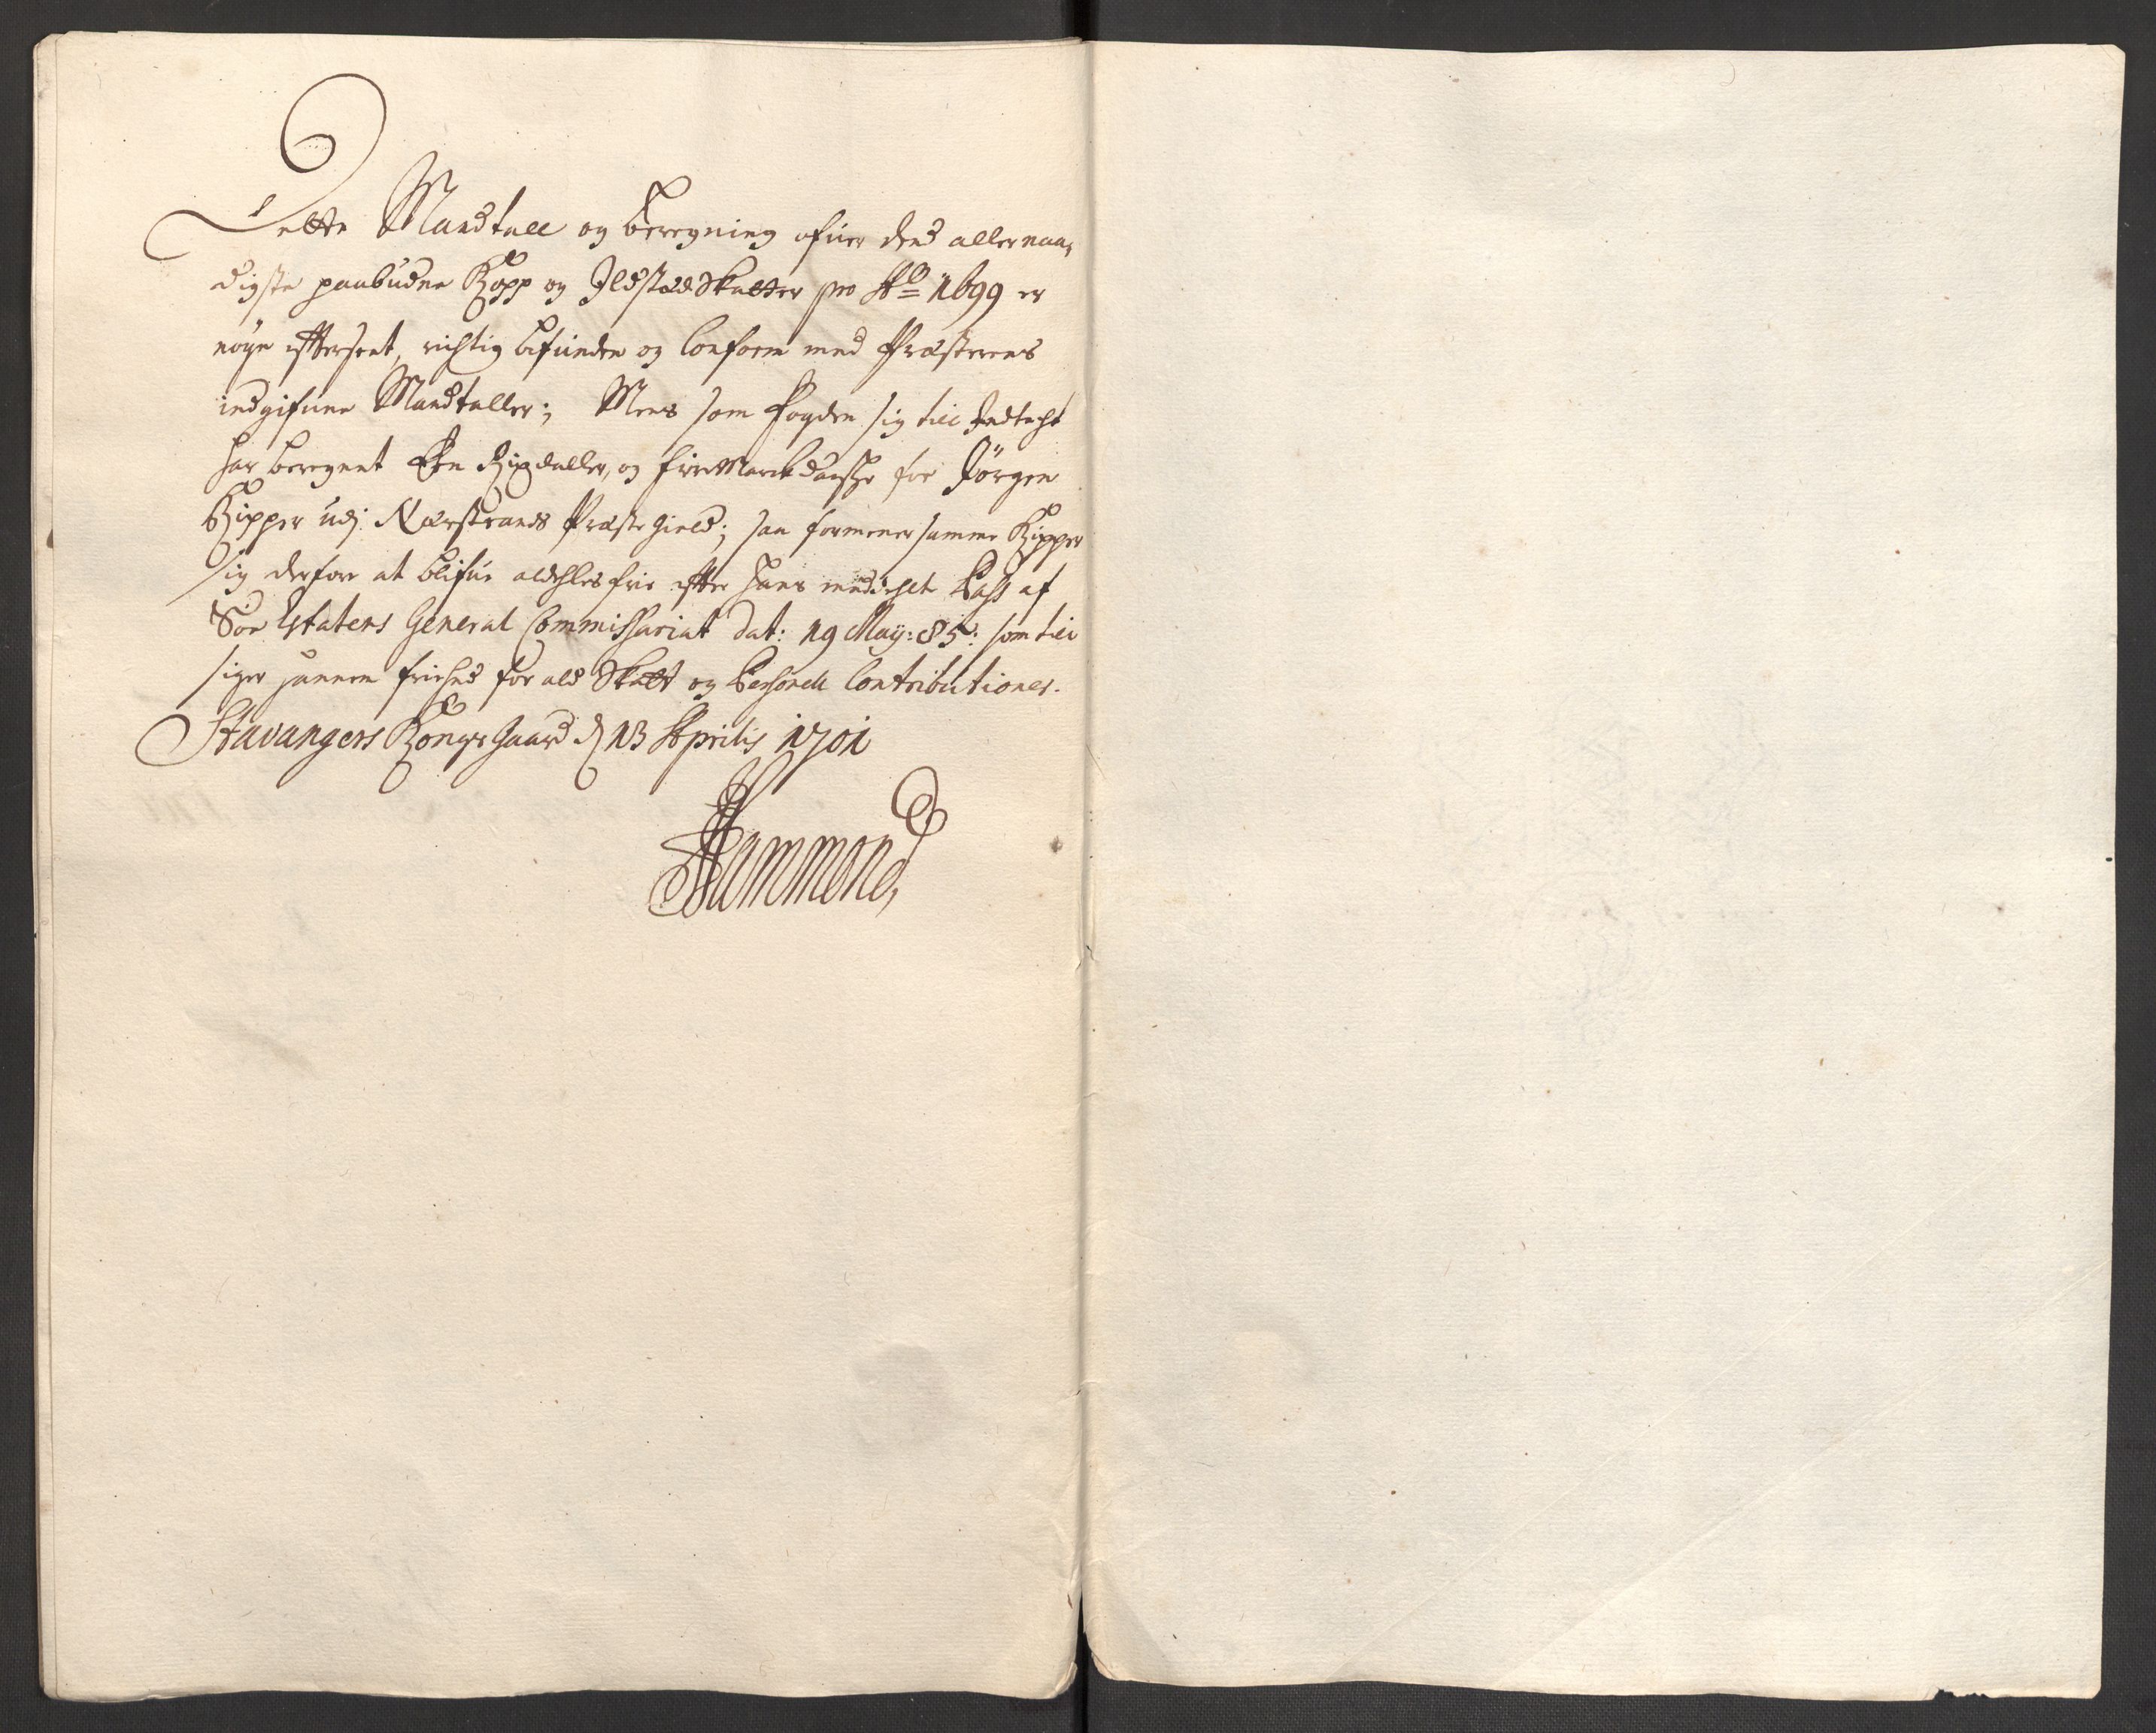 Dette Mandtall og beregning ofuer dend allernaa,
digste paabudne Kopp og Ildstæd Skatter pro Ao 1699 er
nöye efterseet, richtig befunden og Conform med Præsternes
indgifune Mandtaller; Mens som fogden sig till Indtecht
har beregnet Een Rixdaller, og fire Marck danske for Jörgen
Kipper udj Nærstrands Præstegield; saa formener samme Kipper
sig derfore at blifue aldehles frie efter hans meddehlt Pass af
Söe Etatens General Commissariat dat: 19 Maij: 85: som till
siger hannem friehed for ald Skatt og Personell Contributioner.
Stavangers Kongsgaard d 13 Aprilis 1701
Hammond,